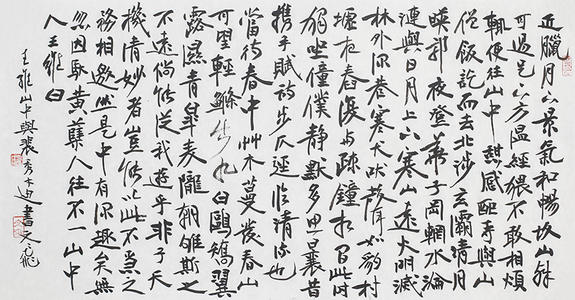 近臘月下景氣和暢故山殊
可過足下方溫經猥不敢相煩
輒便往山中憩感配寺與山
僧飯訖而去北涉玄灞清月
映郭夜登華子岡輞水淪
漣與日月上下寒山遠火明滅
林外深巷寒犬吠聲如豹村
墟夜舂復与疎鐘相間此時
獨坐僮僕靜默多思曩昔
攜手賦詩步仄逕臨清流也
當待春中艸木蔓發春山
可望輕鯈出水白鷗矯翼
露濕青皋麥隴朝雊斯之
不遠倘能從我遊乎非子天
機清妙者豈能以此不急之
務相邀然是中有深趣矣無
忽因馱黃蘗人往不一山中
人王維白
王維山中與裴秀才迪書